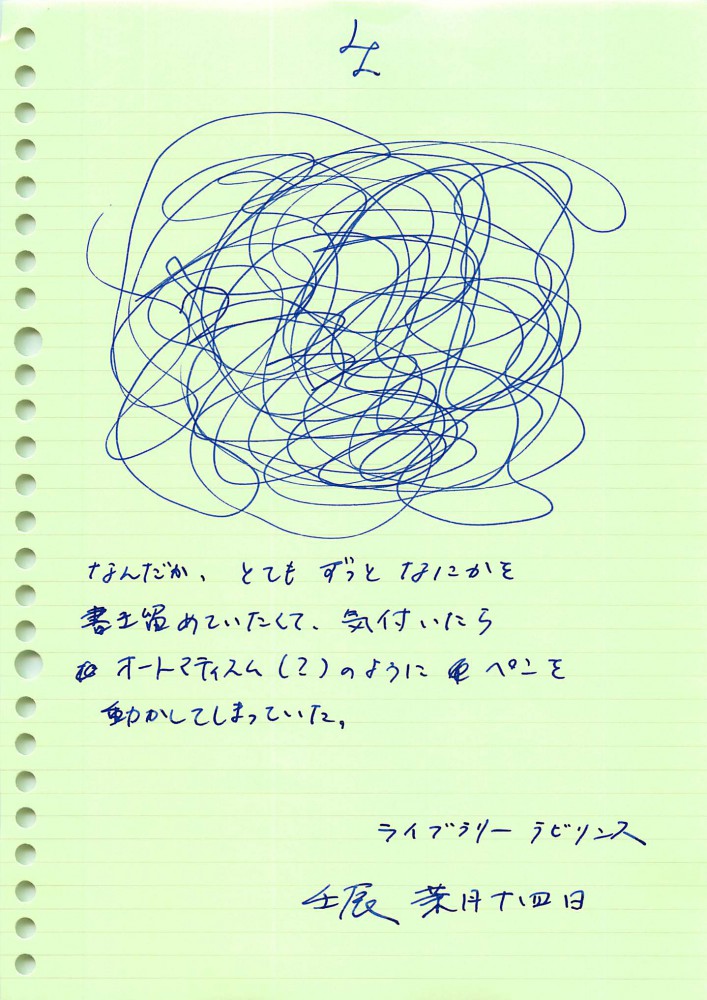 LL
なんだか、とても ずっと なにかを
書き留めていたくて、気付いたら
オートマティスム(?)のように ペンを
動かしてしまっていた。
ライブラリー ラビリンス
壬辰 葉月十四日